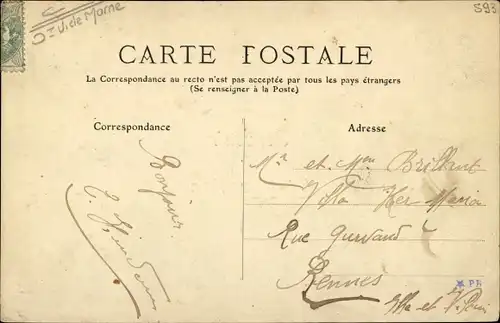 593
Dt Vi de Marne
CARTE POSTALE
La Correspondance au recto n'est pas acceptée par tous les pays étrangers
(Se renseigner à la Poste)
Correspondance
Adresse
Bonjour.
Mr et Mme
Villa Ker Maria
Rue Gurvand
Rennes
Ille et Vilaine
PR